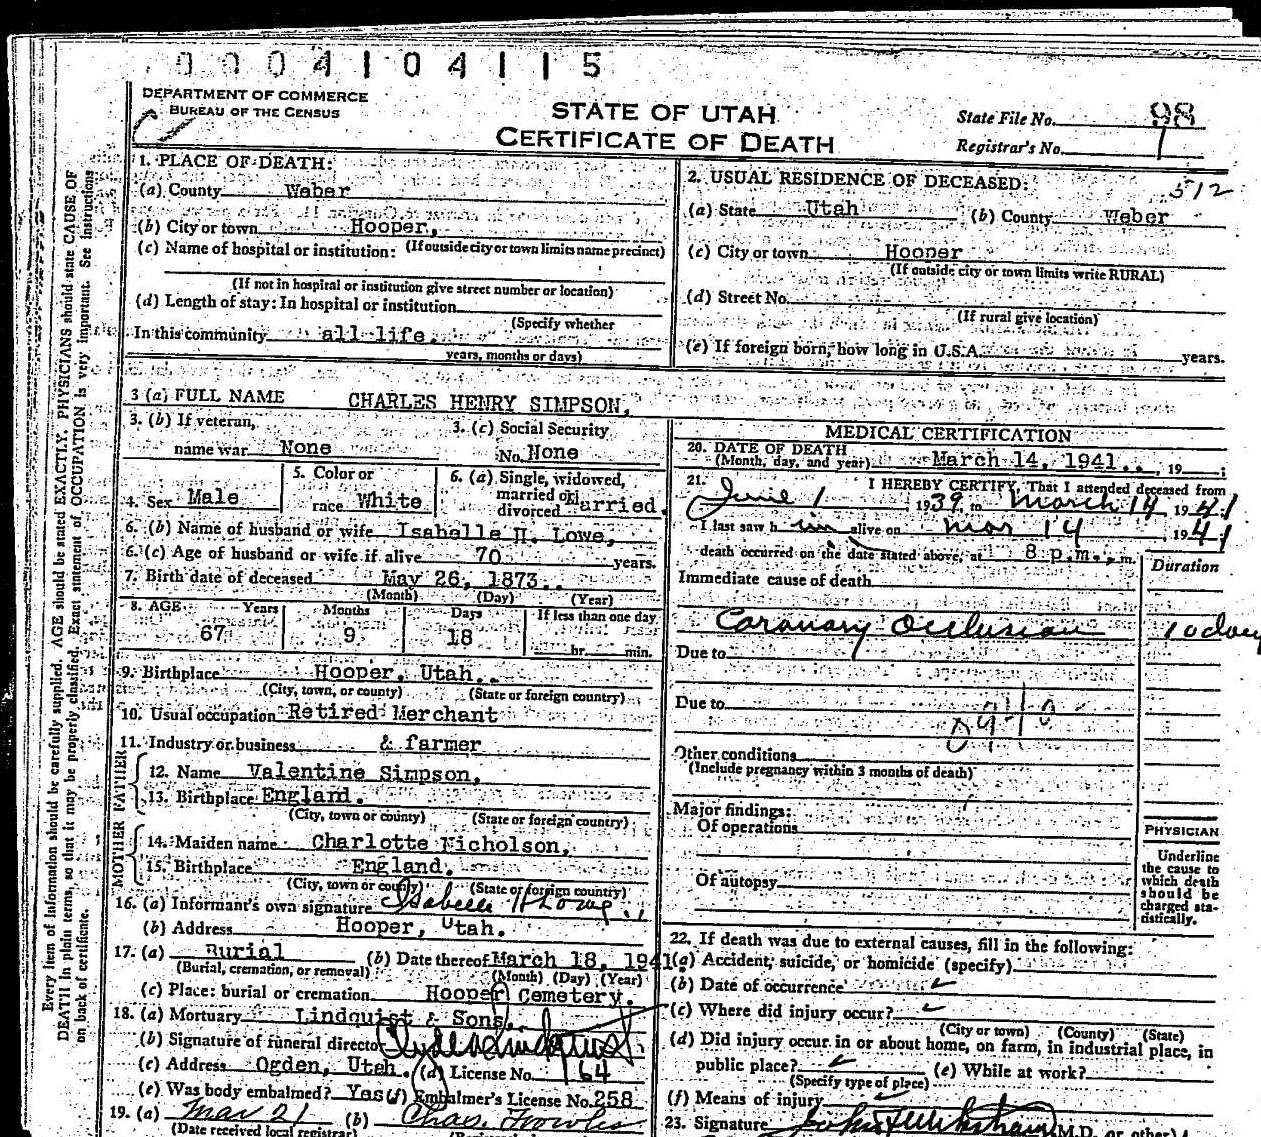 0004104115
DEPARTMENT OF COMMERCE
BUREAU OF THE CENSUS
STATE OF UTAH
CERTIFICATE OF DEATH
State File No. 98
Registrar's No. 1
Every item of information should be carefully supplied. AGE should be stated EXACTLY. PHYSICIANS should state CAUSE OF
DEATH in plain terms, so that it may be properly classified. Exact statement of OCCUPATION is very important. See instructions
on back of certificate.
1. PLACE OF DEATH:
(a) County Weber
(b) City or town Hooper,
(c) Name of hospital or institution: (If outside city or town limits name precinct)
(If not in hospital or institution give street number or location)
(d) Length of stay: In hospital or institution
(Specify whether
In this community all life.
years, months or days)
2. USUAL RESIDENCE OF DECEASED: 512
(a) State Utah (b) County Weber
(c) City or town Hooper
(If outside city or town limits write RURAL)
(d) Street No.
(If rural give location)
(e) If foreign born, how long in U.S.A. years.
3 (a) FULL NAME CHARLES HENRY SIMPSON,
3. (b) If veteran, 3. (c) Social Security
name war None No. None
4. Sex Male 5. Color or race White 6. (a) Single, widowed, married or divorced arried.
6. (b) Name of husband or wife Isabelle H. Lowe,
6. (c) Age of husband or wife if alive 70 years.
7. Birth date of deceased May 26, 1873.
(Month) (Day) (Year)
8. AGE Years Months Days If less than one day
67 9 18 hr. min.
9. Birthplace Hooper, Utah.
(City, town, or county) (State or foreign country)
10. Usual occupation Retired Merchant
11. Industry or business & farmer
FATHER
12. Name Valentine Simpson,
13. Birthplace England.
(City, town or county) (State or foreign country)
MOTHER
14. Maiden name Charlotte Nicholson,
15. Birthplace England.
(City, town or county) (State or foreign country)
16. (a) Informant's own signature Isabelle H
(b) Address Hooper, Utah.
17. (a) Burial (b) Date thereof March 18, 1941
(Burial, cremation, or removal) (Month) (Day) (Year)
(c) Place: burial or cremation Hooper Cemetery.
18. (a) Mortuary Lindquist & Sons,
(b) Signature of funeral director Clyde Lindquist
(c) Address Ogden, Utah. (d) License No. 164
(e) Was body embalmed? Yes (f) Embalmer's License No. 258
19. (a) Mar 21 (b) Chas.
(Date received local registrar)
MEDICAL CERTIFICATION
20. DATE OF DEATH
(Month, day, and year) March 14, 1941. , 19 ;
21. I HEREBY CERTIFY, That I attended deceased from
June 1 1939, to March 14 1941
I last saw h im alive on Mar 14 , 1941
death occurred on the date stated above, at 8 p.m. m.
Duration
Immediate cause of death
Coronary Occlusion 10 day
Due to
Due to
Other conditions
(Include pregnancy within 3 months of death)
Major findings:
Of operations
Of autopsy
PHYSICIAN
Underline
the cause to
which death
should be
charged sta-
tistically.
22. If death was due to external causes, fill in the following:
(a) Accident, suicide, or homicide (specify)
(b) Date of occurrence
(c) Where did injury occur?
(City or town) (County) (State)
(d) Did injury occur in or about home, on farm, in industrial place, in
public place? (e) While at work?
(Specify type of place)
(f) Means of injury
23. Signature (M.D. or other)